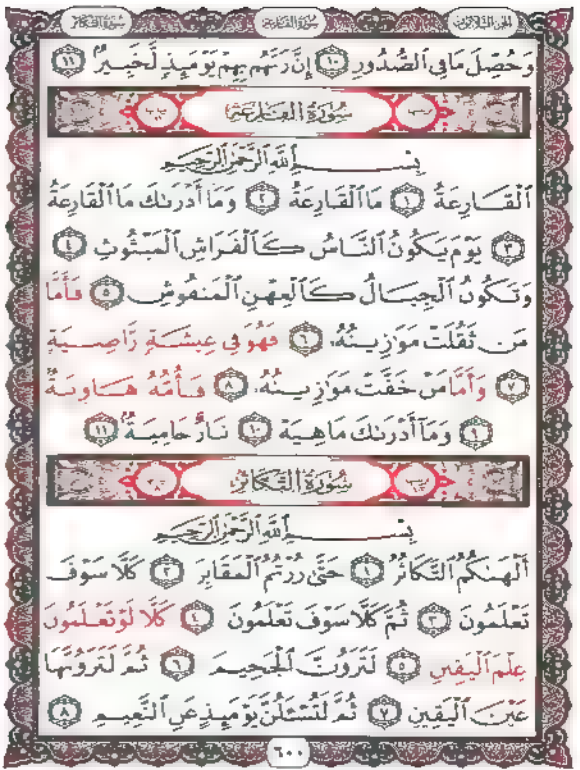 سورة التكاثر سورة القارعة الجزء الثلاثون
وَحُصِّلَ مَا فِي ٱلصُّدُورِ ١٠ إِنَّ رَبَّهُم بِهِمْ يَوْمَئِذٍ لَّخَبِيرٌۢ ١١
سُورَةُ القَارِعَةِ
بِسْمِ ٱللَّهِ ٱلرَّحْمَٰنِ ٱلرَّحِيمِ
ٱلْقَارِعَةُ ١ مَا ٱلْقَارِعَةُ ٢ وَمَآ أَدْرَىٰكَ مَا ٱلْقَارِعَةُ
٣ يَوْمَ يَكُونُ ٱلنَّاسُ كَٱلْفَرَاشِ ٱلْمَبْثُوثِ ٤
وَتَكُونُ ٱلْجِبَالُ كَٱلْعِهْنِ ٱلْمَنفُوشِ ٥ فَأَمَّا
مَن ثَقُلَتْ مَوَٰزِينُهُۥ ٦ فَهُوَ فِي عِيشَةٍ رَّاضِيَةٍ
٧ وَأَمَّا مَنْ خَفَّتْ مَوَٰزِينُهُۥ ٨ فَأُمُّهُۥ هَاوِيَةٌ
٩ وَمَآ أَدْرَىٰكَ مَا هِيَهْ ١٠ نَارٌ حَامِيَةٌۢ ١١
سُورَةُ التَّكَاثُرِ
بِسْمِ ٱللَّهِ ٱلرَّحْمَٰنِ ٱلرَّحِيمِ
أَلْهَىٰكُمُ ٱلتَّكَاثُرُ ١ حَتَّىٰ زُرْتُمُ ٱلْمَقَابِرَ ٢ كَلَّا سَوْفَ
تَعْلَمُونَ ٣ ثُمَّ كَلَّا سَوْفَ تَعْلَمُونَ ٤ كَلَّا لَوْ تَعْلَمُونَ
عِلْمَ ٱلْيَقِينِ ٥ لَتَرَوُنَّ ٱلْجَحِيمَ ٦ ثُمَّ لَتَرَوُنَّهَا
عَيْنَ ٱلْيَقِينِ ٧ ثُمَّ لَتُسْـَٔلُنَّ يَوْمَئِذٍ عَنِ ٱلنَّعِيمِ ٨
٦٠٠